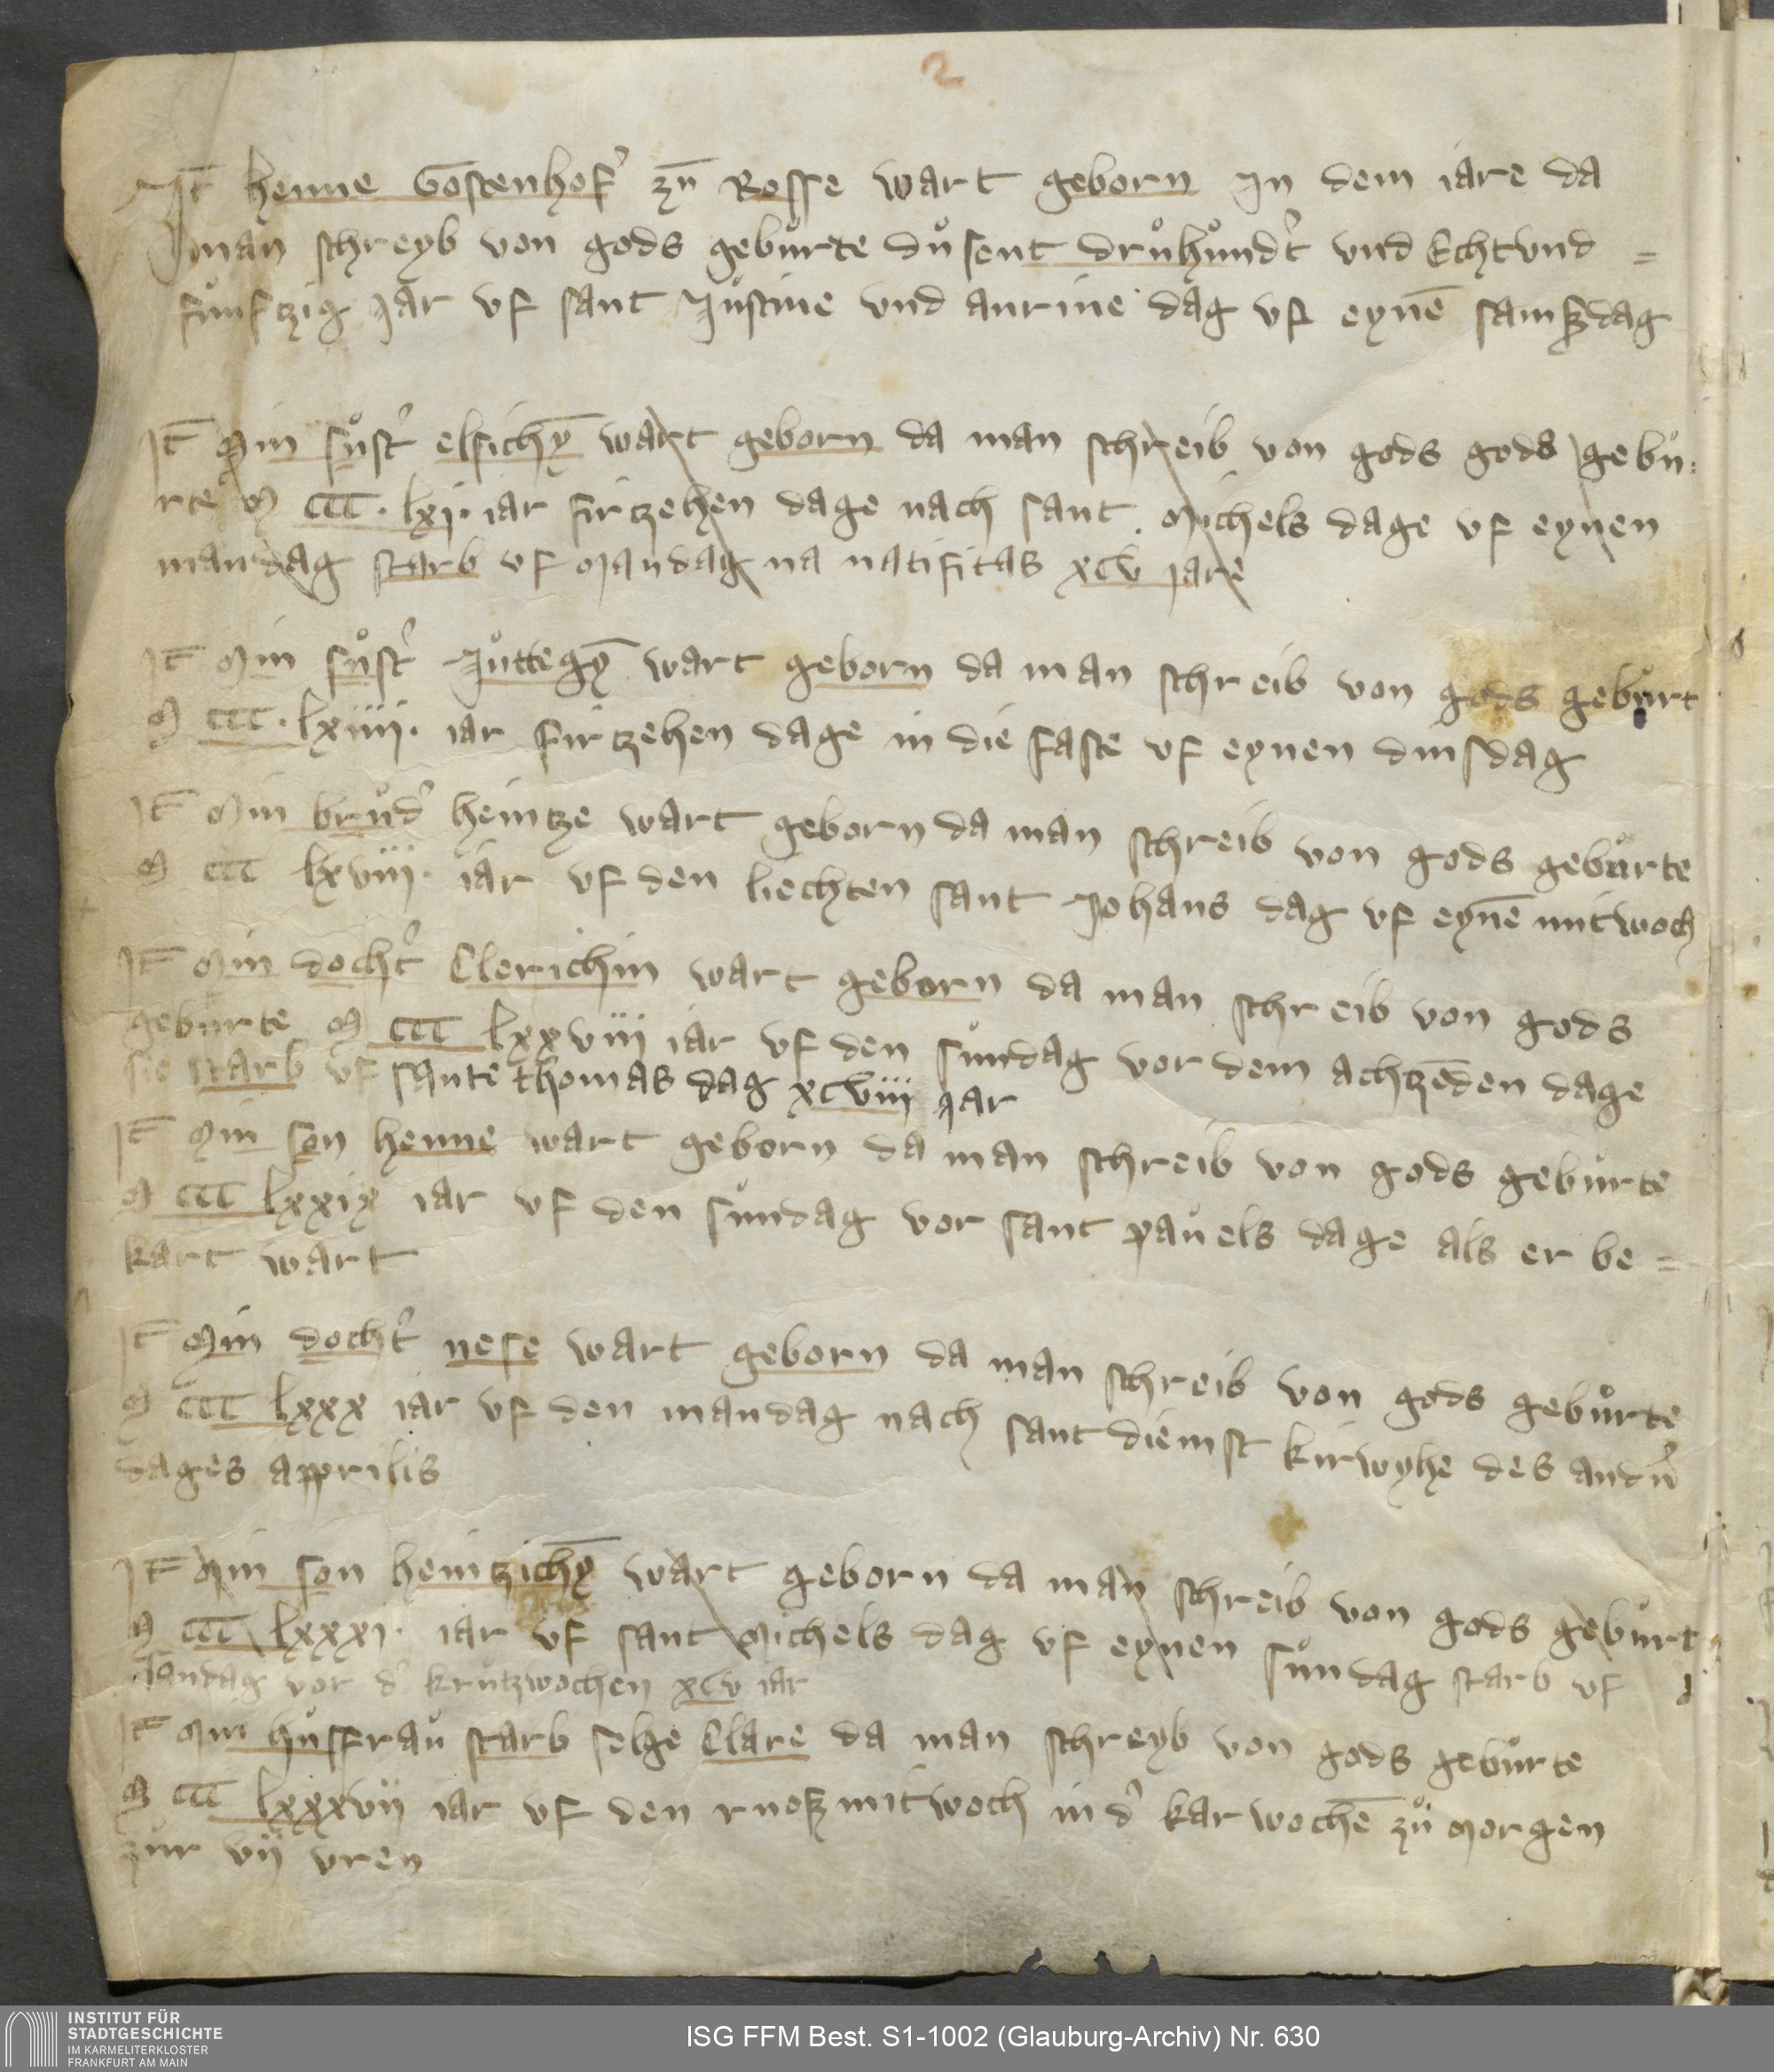 2
It̄ henne Gostenhof' zu̅ Rosse wart geborn In dem iare da
man schreyb von gods gebuͦrte duͦsent druͦhuͦnd't vnd Echtvnd =
fuͦnftzig Jar vf sant Juͦstine vnd aurine dag vf eyne̅ samßdag
It̄ Min suͦst' elsichy̅ wart geborn da man schreib von gods gods gebuͦ:
rte M ccc · lxj · iar firtzehen dage nach sant Michels dage vf eynen
mandag starb vf Mandag na natifitas xcv Jare
It̄ Min suͦst' Juͦttegy̅ wart geborn da man schreib von gods gebuͦrt
M ccc · lxiiij · iar firtzehen dage in die faste vf eynen dinsdag
It̄ Min bruͦd' heintze wart geborn da man schreib von gods gebuͦrte
M ccc lxviij · iar vf den liechten sant Johans dag vf eyne̅ mitwoch
It̄ Min docht' Clerichin wart geborn da man schreib von gods
gebuͦrte M ccc lxxviij iar vf den suͦndag vor dem achtze̅den dage
sie starb vf sante thomas dag xcviij Jar
It̄ Min son henne wart geborn da man schreib von gods gebuͦrte
M ccc lxxix iar vf den suͦndag vor sant pauͦels dage als er be =
kart wart
It̄ Min docht' nese wart geborn da man schreib von gods gebuͦrte
M ccc lxxx iar vf den mandag nach sant diemst kirwyhe des andn'
dages apprilis
It̄ Min son heintzichy̅ wart geborn da man schreib von gods gebuͦrt
M ccc lxxxj · iar vf sant Michels dag vf eynen suͦndag starb vf
sandag vor d' kruͦtzwochen xcv iar
It̄ Min huͦsfrauͦ starb selge Clare da man schreyb von gods gebuͦrte
M ccc lxxxvij iar vf den rnoß mitwoch in d' karwoche̅ zuͦ Morgen
zuͦr vij vren
INSTITUT FÜR
STADTGESCHICHTE
IM KARMELITERKLOSTER
FRANKFURT AM MAIN
ISG FFM Best. S1-1002 (Glauburg-Archiv) Nr. 630